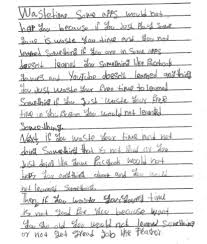 Wastetime. Some apps would not
help you because if you just Play Some
Games is waste your time and you not
learned Something if you are in Some apps
doesn't learned you Something like Facebook
Games and YouTube doesn't learned anything
You Just waste your free time to learned
Something if you Just waste your free
time in you Season you would not learned
Something.
Next if you waste your time and not
doing Something that is not good for you
Just doing like those Facebook would not
help you anything about and you would
not learned Something.
Then if you waste your time
is not good for you because
you old You would not learned Something
or not get good Job like teacher